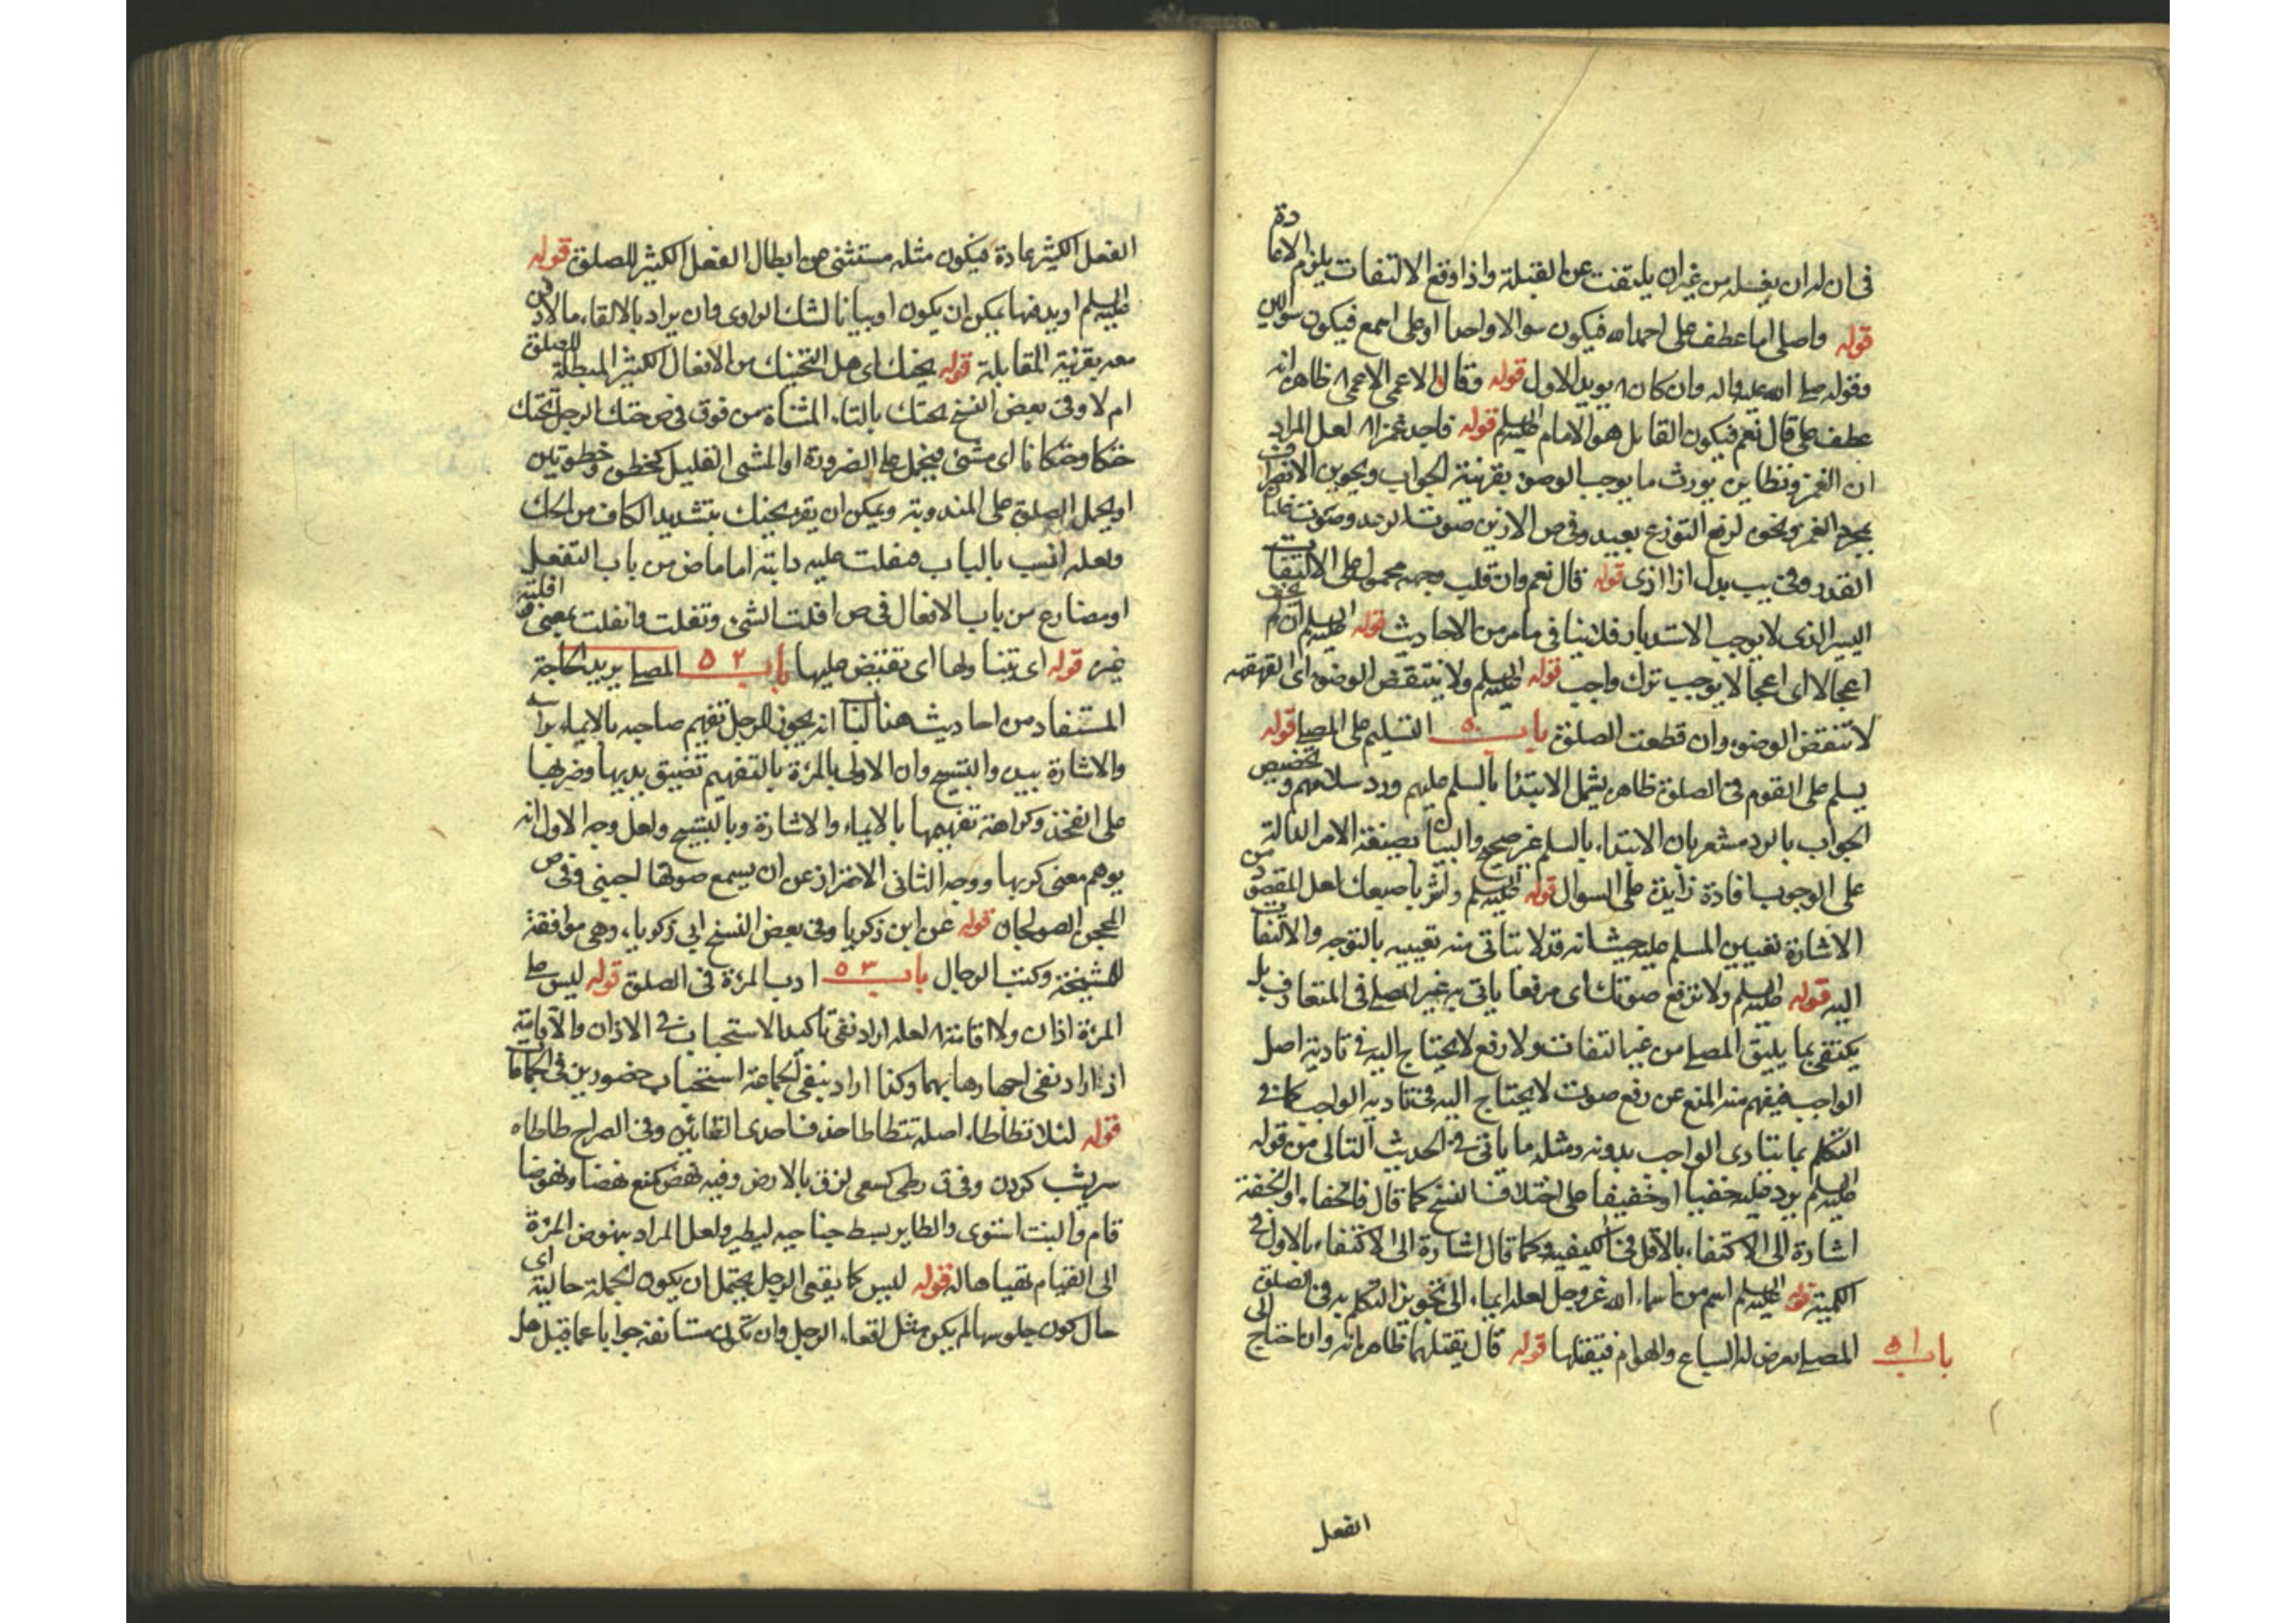 في ان له ان يغسله من غير ان يلتفت عن القبلة واذا وقع الالتفات يلزم الاعادة
قوله واصلي اما عطف على احمد الله فيكون سوالا واحدا او على اسمع فيكون سوالين
وقوله صلى الله عليه واله وان كان ٨ يويد الاول قوله وقال الاعمى الاعمى ٨ ظاهره انه
عطف على قال نعم فيكون القايل هو الامام عليه السلم قوله فاجد غمزا ٨ لعل المراد
ان الغمز ونظايره يورث ما يوجب الوضوء بقرينة الجواب وتجويز الانصراف
بمجرد الغمز ونحوه لرفع التوزع بعيد وفي ص الازيز صوت الرعد وصوت غليان
القدر وفي يب بدل ازا اذى قوله قال نعم وان قلب وجهه محمول على الالتفات
اليسير الذي لا يوجب الاستدبار فلا ينافي ما مر من الاحاديث قوله عليه السلم ان لم يخف
اعجالا اى اعجالا يوجب ترك واجب قوله عليه السلم ولا ينتقض الوضوء اى القهقهه
لا تنقض الوضوء وان قطعت الصلوة باب ٥٠ التسليم على المصلى قوله
يسلم على القوم في الصلوة ظاهره يشمل الابتداء بالسلم عليهم ورد سلامهم وتخصيص
الجواب بالرد مشعر بان الابتداء بالسلم غير صحيح والبيان بصيغة الامر الدالة
على الوجوب افادة زايدة على السوال قوله عليه السلم واشر باصبعك لعل المقصود من
الاشارة تعيين المسلم عليه حيث انه قد لا يتاتى منه تعيينه بالتوجه والالتفات
اليه قوله عليه السلم ولا ترفع صوتك اى مرفعا ياتى به غير المصلى في المتعارف بل
يكتفي بما يليق المصلى من غير التفات ولا رفع لا يحتاج اليه في تادية اصل
الواجب فيفهم منه المنع عن رفع صوت لا يحتاج اليه في تادية الواجب كما في
التكلم بما يتادى الواجب بدونه ومثله ما ياتى في الحديث التالي من قوله
عليه السلم يرد عليه خفيا او خفيفا على اختلاف النسخ كما قال فالخفاء او الخفة
اشارة الى الاكتفاء بالاقل في الكيفية وكما قال اشارة الى الاكتفاء بالاول في
الكمية قوله عليه السلم اسم من اسماء الله عز وجل لعله ايماء الى تجويز التكلم به في الصلوة
باب ٥١ المصلى يعرض له السباع والهوام فيقتلها قوله قال يقتلهما ظاهره انه وان احتاج الى
الفعل
الفعل الكثير عادة فيكون مثله مستثنى من ابطال الفعل الكثير للصلوة قوله
عليه السلم او يدفنها يمكن ان يكون او بيانا لشك الراوى وان يراد بالالقاء ما لا دفن
معه بقرينة المقابلة قوله يحنك اى هل التحنيك من الافعال الكثير المبطلة للصلوة
ام لا وفي بعض النسخ يحتك بالتاء المثناة من فوق في ص حتك الرجل يحتك
حتكا وحتكانا اى مشى فيحمل على الضرورة او المشى القليل كخطوة وخطوتين
او يحمل الصلوة على المندوبة ويمكن ان يقرء يحتك بتشديد الكاف من الحك
ولعله انسب بالباب فتفلت عليه دابته اما ماض من باب التفعل
او مضارع من باب الافعال في ص افلت الشئ وتفلت وانفلت بمعنى وافلته
غيره قوله اى يتناولها اى تقبض عليها باب ٥٢ المصلى يريد الحاجة
المستفاد من احاديث هذا الباب انه يجوز للرجل تفهيم صاحبه بالايماء براسه
والاشارة بيده والتسبيح وان الاولى بالمرءة بالتفهيم تصفيق يديها وضربها
على الفخذ وكراهة تفهيمها بالايماء والاشارة وبالتسبيح ولعل وجه الاول انه
يوهم معنى كريها ووجه الثاني الاحتراز عن ان يسمع صوتها اجنبي وفي ص
المحجن الصولجان قوله عن ابن زكريا وفي بعض النسخ ابي زكرياء وهي موافقة
للمشيخة وكتب الرجال باب ٥٣ ادب المرءة في الصلوة قوله ليس على
المرءة اذان ولا اقامة ٨ لعله اراد نفى تاكيد الاستحباب في الاذان والاقامة
اذ اراد نفى اجهارها بهما وكذا اراد بنفى الجماعة استحباب حضورهن في الجماعات
قوله لئلا تطاطاء اصله تتطاطا حذف احدى التائين وفي الصراح طاطاه
سر پشب كردن وفي ق لطى كسعى لزق بالارض وفيه نهض كمنع نهضا ونهوضا
قام والنبت استوى والطاير بسط جناحيه ليطير ولعل المراد بنهوض المرءة
الى القيام تهياها له قوله ليس كما يقعى الرجل يحتمل ان يكون الجملة حالية اى
حال كون جلوسها لم يكن مثل اقعاء الرجل وان تكون مستانفة جوابا عما قيل هل